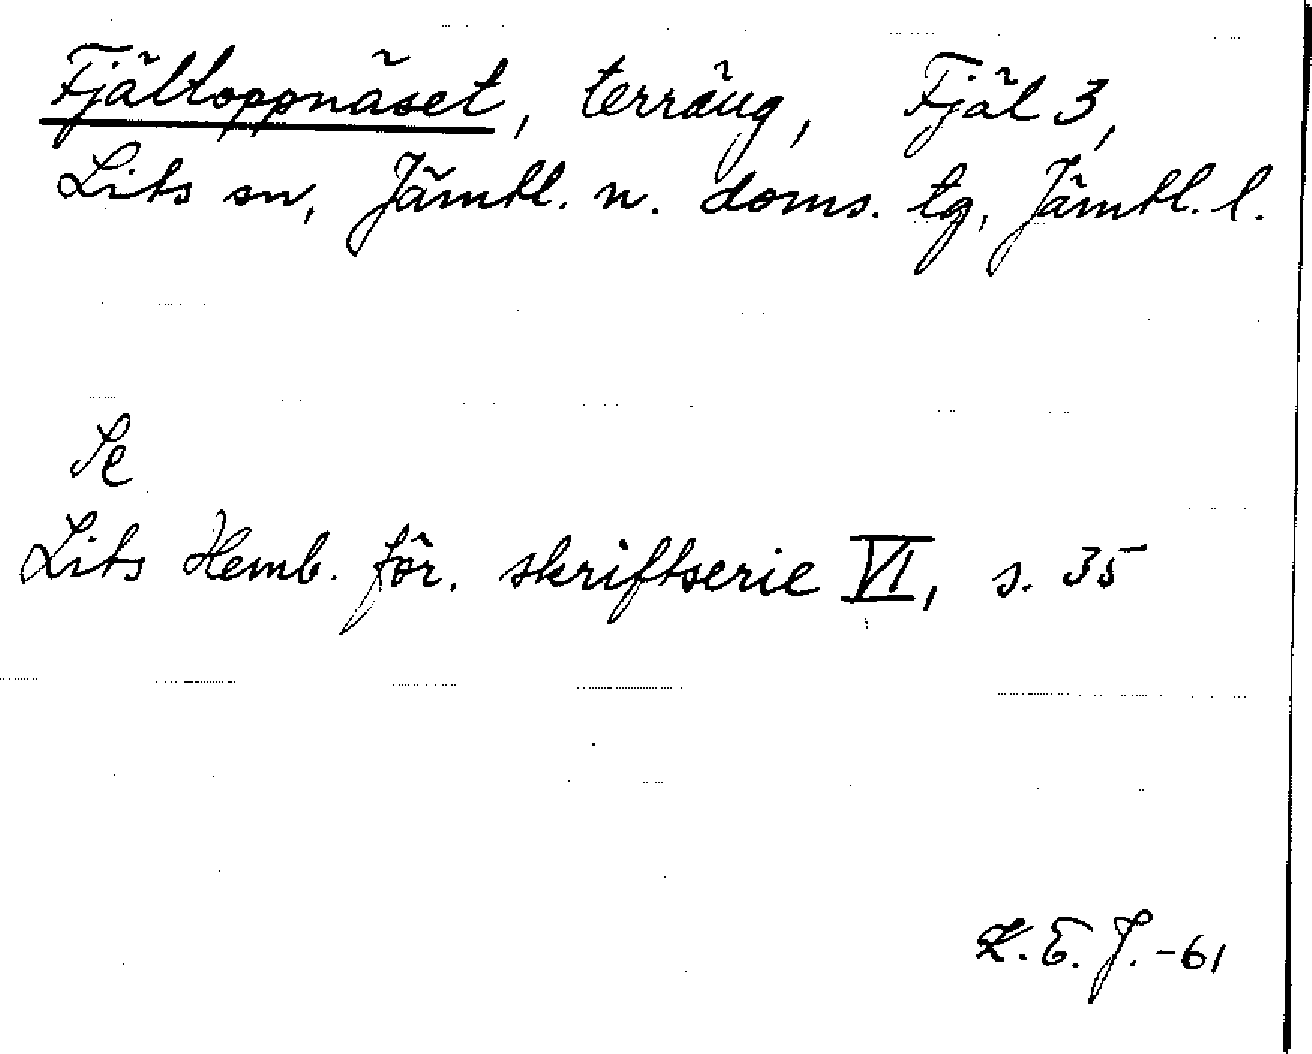 Fjältoppnäset, terräng, Fjäl 3,
Lits sn, Jämtl. n. doms. tg, Jämtl. l.
Se
Lits Hemb. för. skriftserie VI, s. 35
K. E. J. -61